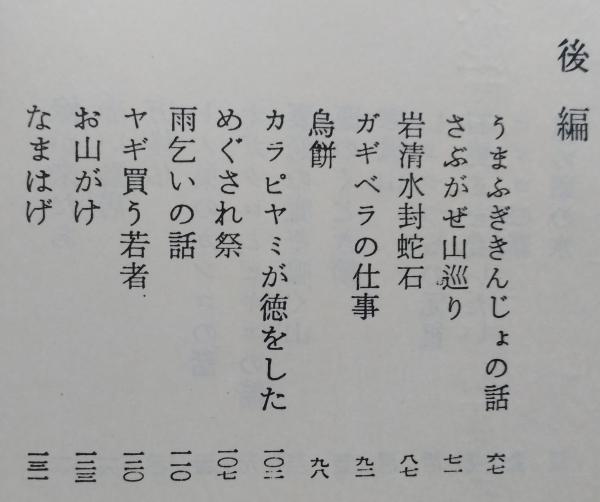 後編
うまふぎきんじょの話 六七
さぶがぜ山巡り 七一
岩清水封蛇石 八七
ガギベラの仕事 九二
烏餅 九八
カラピヤミが徳をした 一〇二
めぐされ祭 一〇七
雨乞いの話 一一〇
ヤギ買う若者 一二〇
お山がけ 一二三
なまはげ 一三一